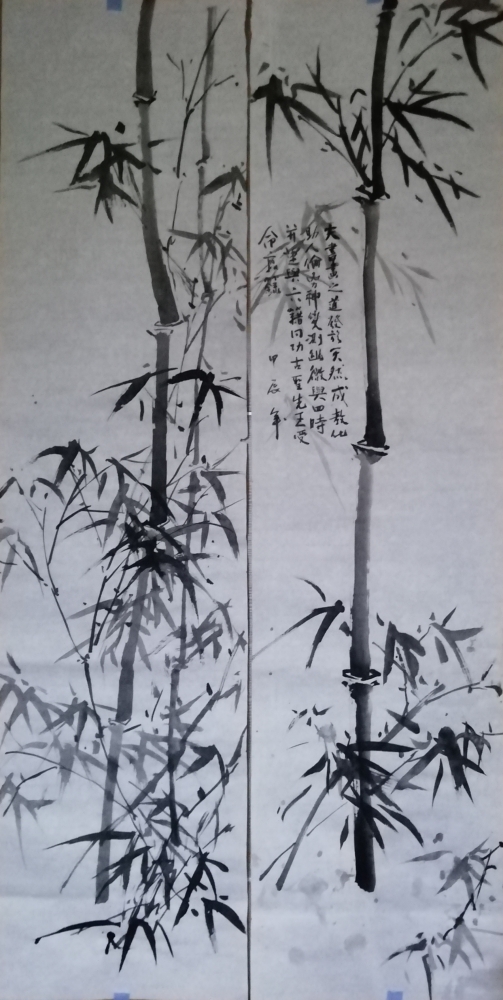 夫書畫之道發於天然成教化
助人倫窮神變測幽微與四時
並運與六籍同功古聖先王受
命應籙 甲辰年